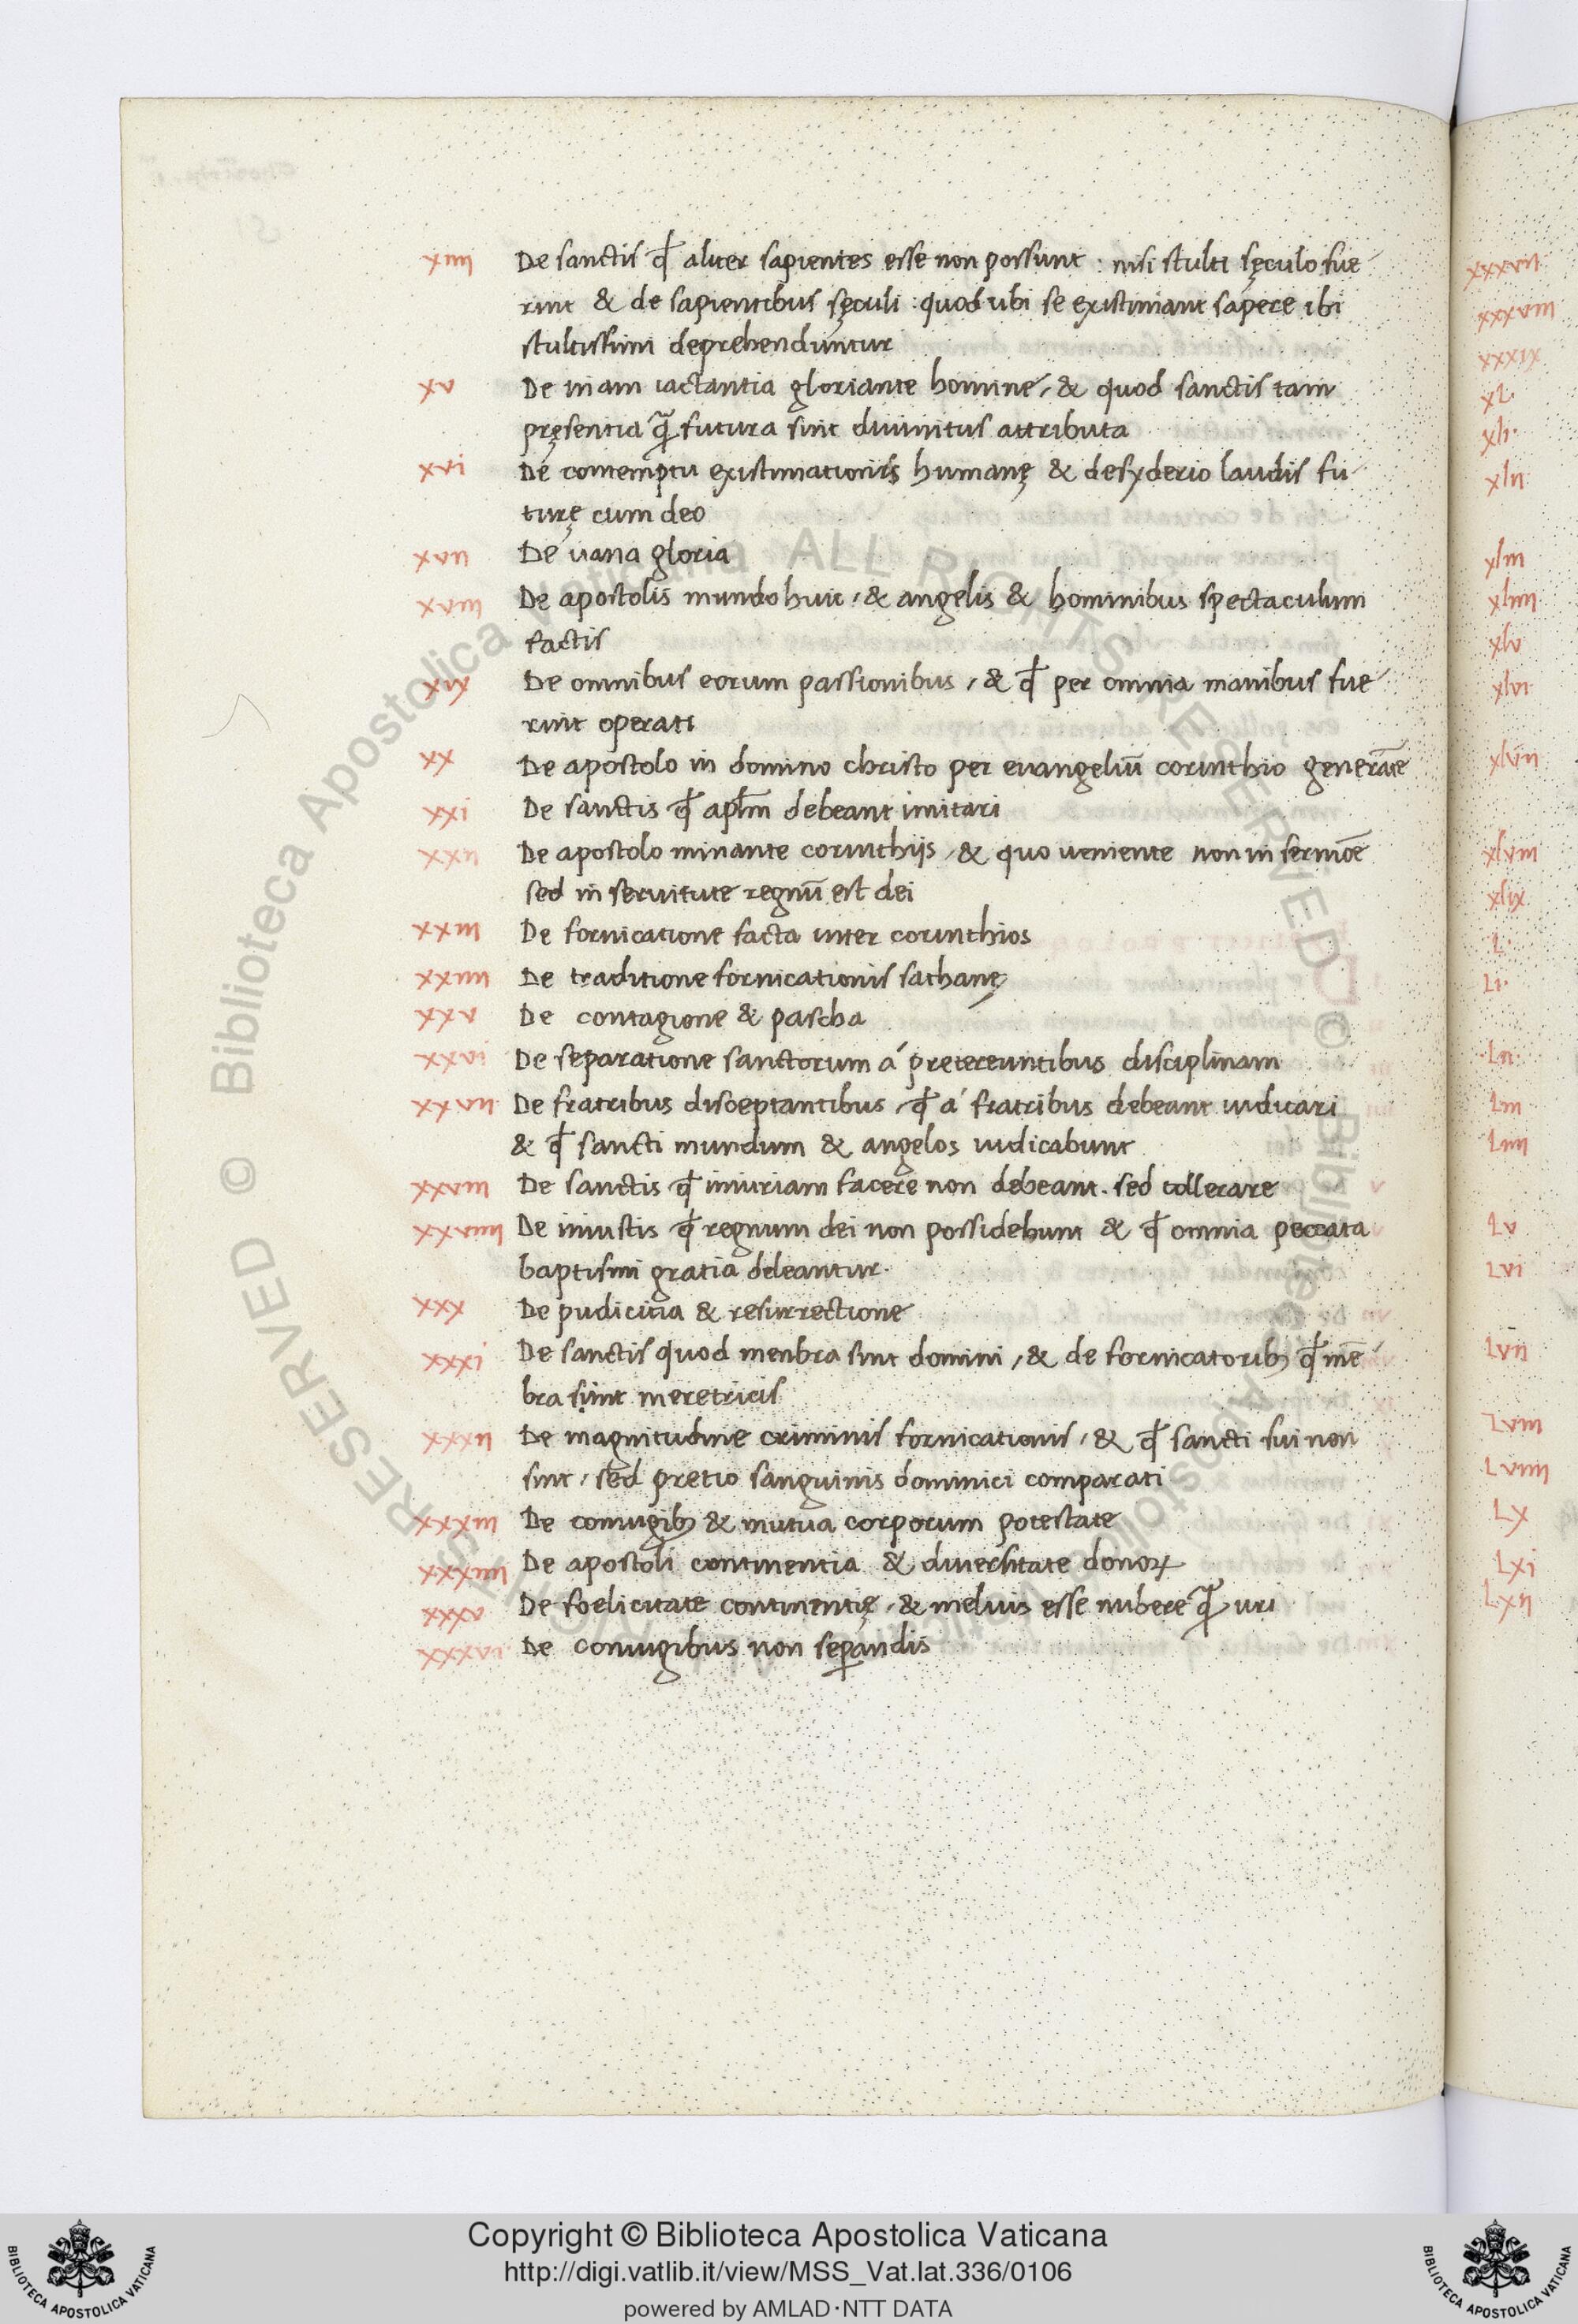 xiiii De sanctis qd̄ aliter sapientes esse non possunt : nisi stulti sęculo fue
rint & de sapientibus sęculi : quod ubi se existimant sapere ibi
stultissimi deprehenduntur
xv De inam iactantia gloriante homine, & quod sanctis tam
pręsentia q̄ futura sint diuinitus attributa
xvi De contemptu existimationis humanę & desyderio laudis fu
turę cum deo
xvii De uana gloria
xviii De apostolis mundo huic, & angelis & hominibus spectaculum
factis
xix De omnibus eorum passionibus, & qd̄ per omnia manibus fue
rint operati
xx De apostolo in domino christo per euangeliū corinthio generāte
xxi De sanctis qd̄ aplm̄ debeant imitari
xxii De apostolo minante corinthijs, & quo ueniente non in sermōe
sed in seruitute regnū est dei
xxiii De fornicatione facta inter corinthios
xxiiii De traditione fornicationis sathanę
xxv De contagione & pascha
xxvi De separatione sanctorum á pretereuntibus disciplinam
xxvii De fratribus disceptantibus, qd̄ á fratribus debeant iudicari
& qd̄ sancti mundum & angelos iudicabunt
xxviii De sanctis qd̄ iniuriam facere non debeant. sed tollerare
xxviiii De iniustis qd̄ regnum dei non possidebunt & qd̄ omnia peccata
baptismi gratia deleantur.
xxx De pudicitia & resurrectione
xxxi De sanctis quod menbra sint domini, & de fornicatorib; qd̄ mē
bra sint meretricis
xxxii De magnitudine criminis fornicationis, & qd̄ sancti sui non
sint, sed pretio sanguinis dominici comparati
xxxiii De coniugib; & mutua corporum potestate
xxxiiii De apostoli continentia & diuersitate donoꝝ
xxxv De foelicitate continentię, & melius esse nubere q̄ uri
xxxvi De coniugibus non seꝑandis
xxxvii
xxxviii
xxxix
xl.
xli.
xlii
xliii
xliiii
xlv
xlvi
xlvii
xlviii
xlix
L.
Li.
Lii.
Liii
Liiii
Lv
Lvi
Lvii
Lviii
Lviiii
Lx
Lxi
Lxii
Copyright © Biblioteca Apostolica Vaticana
http://digi.vatlib.it/view/MSS_Vat.lat.336/0106
powered by AMLAD·NTT DATA